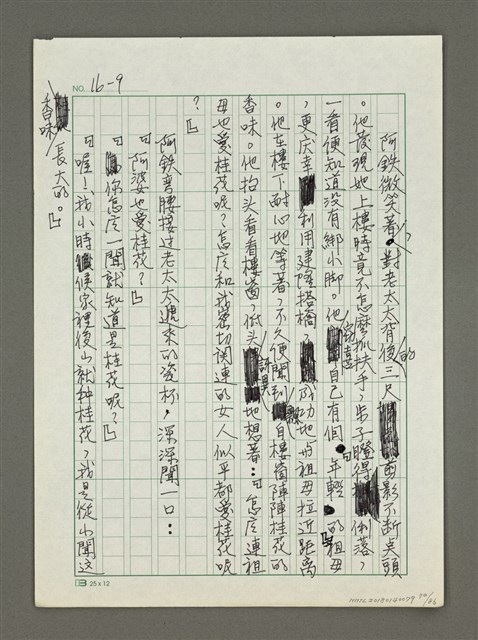 NO. 16-9
阿鉄微笑着，對老太太背後三尺的面影不斷点頭
。他發現她上樓時竟不怎麼抓扶手，步子瞪得俐落，
一看便知道没有綁小脚。他欣喜自己有個「年輕」的祖母
，更庆幸利用建隆搭橋，成功地与祖母拉近距离
。他在樓下耐心地等着，不久便聞到自樓窗陣陣桂花的
香味。他抬头看看樓窗，低头訝異地想着：「怎庅連祖
母也愛桂花呢？怎庅和我密切関連的女人似乎都爱桂花呢
？」
阿鉄弯腰接过老太太遞來的瓷杯，深深聞一口：
「阿婆也愛桂花？」
「你怎庅一聞就知道是桂花呢？」
「喔！我小時候家裡後山就种桂花，我是從小聞这
香味長大的。」
25x12